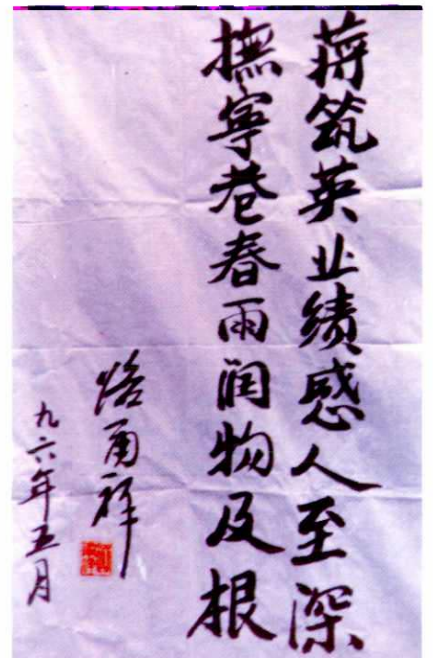 蒋筑英业绩感人至深
撫寧巷春雨润物及根
路甬祥
九六年五月